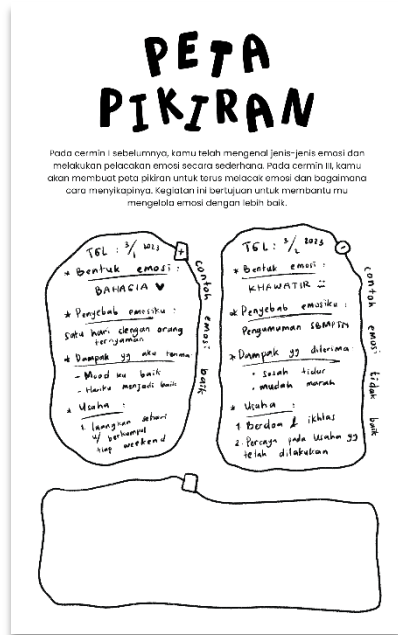 PETA
PIKIRAN
Pada cermin I sebelumnya, kamu telah mengenal jenis-jenis emosi dan
melakukan pelacakan emosi secara sederhana. Pada cermin III, kamu
akan membuat peta pikiran untuk terus melacak emosi dan bagaimana
cara menyikapinya. Kegiatan ini bertujuan untuk membantu mu
mengelola emosi dengan lebih baik.
TGL : 3/1 2023
+
* Bentuk emosi :
BAHAGIA ♥
* Penyebab emosiku :
Satu hari dengan orang
ternyaman
* Dampak yg aku terima
- Mood ku baik
- Hariku menjadi baik
* Usaha :
1. luangkan sehari
u/ berkumpul
tiap weekend
contoh emosi baik
TGL : 3/2 2023
-
* Bentuk emosi :
KHAWATIR
* Penyebab emosiku :
Pengumuman SBMPTN
* Dampak yg diterima
• susah tidur
• mudah marah
* Usaha :
1 Berdoa & ikhlas
2. Percaya pada usaha yg
telah dilakukan
contoh emosi tidak baik